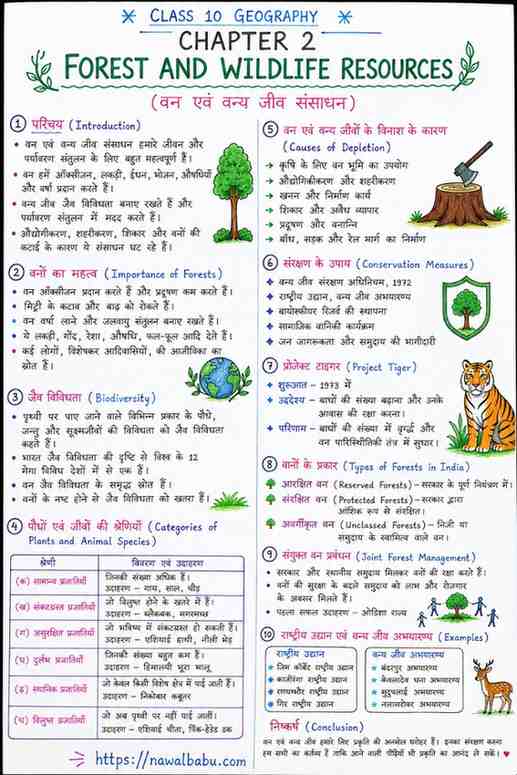 CLASS 10 GEOGRAPHY
CHAPTER 2
FOREST AND WILDLIFE RESOURCES
(वन एवं वन्य जीव संसाधन)
① परिचय (Introduction)
• वन एवं वन्य जीव संसाधन हमारे जीवन और
पर्यावरण संतुलन के लिए बहुत महत्वपूर्ण हैं।
• वन हमें ऑक्सीजन, लकड़ी, ईंधन, भोजन, औषधियाँ
और वर्षा प्रदान करते हैं।
• वन्य जीव जैव विविधता बनाए रखते हैं और
पर्यावरण संतुलन में मदद करते हैं।
• औद्योगीकरण, शहरीकरण, शिकार और वनों की
कटाई के कारण ये संसाधन घट रहे हैं।
② वनों का महत्व (Importance of Forests)
• वन ऑक्सीजन प्रदान करते हैं और प्रदूषण कम करते हैं।
• मिट्टी के कटाव और बाढ़ को रोकते हैं।
• वन वर्षा लाने और जलवायु संतुलन बनाए रखते हैं।
• ये लकड़ी, गोंद, रेशा, औषधि, फल-फूल आदि देते हैं।
• कई लोगों, विशेषकर आदिवासियों, की आजीविका का
स्रोत हैं।
③ जैव विविधता (Biodiversity)
• पृथ्वी पर पाए जाने वाले विभिन्न प्रकार के पौधे,
जन्तु और सूक्ष्मजीवों की विविधता को जैव विविधता
कहते हैं।
• भारत जैव विविधता की दृष्टि से विश्व के 12
मेगा विविध देशों में से एक है।
• वन जैव विविधता के समृद्ध स्रोत हैं।
• वनों के नष्ट होने से जैव विविधता को खतरा हैं।
④ पौधों एवं जीवों की श्रेणियाँ (Categories of
Plants and Animal Species)
श्रेणी विवरण एवं उदाहरण
(क) सामान्य प्रजातियाँ जिनकी संख्या अधिक हैं।
उदाहरण – गाय, साल, चीड़
(ख) संकटग्रस्त प्रजातियाँ जो विलुप्त होने के खतरे में हैं।
उदाहरण – ब्लैकबक, मगरमच्छ
(ग) असुरक्षित प्रजातियाँ जो भविष्य में संकटग्रस्त हो सकती हैं।
उदाहरण – एशियाई हाथी, नीली भेड़
(घ) दुर्लभ प्रजातियाँ जिनकी संख्या बहुत कम हैं।
उदाहरण – हिमालयी भूरा भालू
(ङ) स्थानिक प्रजातियाँ जो केवल किसी विशेष क्षेत्र में पाई जाती हैं।
उदाहरण – निकोबार कबूतर
(च) विलुप्त प्रजातियाँ जो अब पृथ्वी पर नहीं पाई जातीं।
उदाहरण – एशियाई चीता, पिंक-हेडेड डक
https://nawalbabu.com
⑤ वन एवं वन्य जीवों के विनाश के कारण
(Causes of Depletion)
→ कृषि के लिए वन भूमि का उपयोग
→ औद्योगिकीकरण और शहरीकरण
→ खनन और निर्माण कार्य
→ शिकार और अवैध व्यापार
→ प्रदूषण और वनाग्नि
→ बाँध, सड़क और रेल मार्ग का निर्माण
⑥ संरक्षण के उपाय (Conservation Measures)
वन्य जीव संरक्षण अधिनियम, 1972
राष्ट्रीय उद्यान, वन्य जीव अभयारण्य
बायोस्फीयर रिजर्व की स्थापना
सामाजिक वानिकी कार्यक्रम
जन जागरूकता और समुदाय की भागीदारी
⑦ प्रोजेक्ट टाइगर (Project Tiger)
शुरुआत – 1973 में
उद्देश्य – बाघों की संख्या बढ़ाना और उनके
आवास की रक्षा करना।
परिणाम – बाघों की संख्या में वृद्धि और
वन पारिस्थितिकी तंत्र में सुधार।
⑧ वानों के प्रकार (Types of Forests in India)
आरक्षित वन (Reserved Forests) – सरकार के पूर्ण नियंत्रण में।
संरक्षित वन (Protected Forests) – सरकार द्वारा
आंशिक रूप से संरक्षित।
अवर्गीकृत वन (Unclassed Forests) – निजी या
समुदाय के स्वामित्व वाले वन।
⑨ संयुक्त वन प्रबंधन (Joint Forest Management)
• सरकार और स्थानीय समुदाय मिलकर वनों की रक्षा करते हैं।
• वनों की सुरक्षा के बदले समुदाय को लाभ और रोजगार
के अवसर मिलते हैं।
• पहला सफल उदाहरण – ओडिशा राज्य
⑩ राष्ट्रीय उद्यान एवं वन्य जीव अभयारण्य (Examples)
राष्ट्रीय उद्यान
जिम कॉर्बेट राष्ट्रीय उद्यान
काजीरंगा राष्ट्रीय उद्यान
रणथम्भौर राष्ट्रीय उद्यान
गिर राष्ट्रीय उद्यान
वन्य जीव अभयारण्य
बंदरपुर अभयारण्य
केवलादेव घना अभयारण्य
मुदुमलाई अभयारण्य
अभयारण्य
निष्कर्ष (Conclusion)
वन एवं वन्य जीव हमारे लिए प्रकृति की अनमोल धरोहर हैं। इनका संरक्षण करना
हम सभी का कर्तव्य है ताकि आने वाली पीढ़ियाँ भी प्रकृति का आनंद ले सकें।